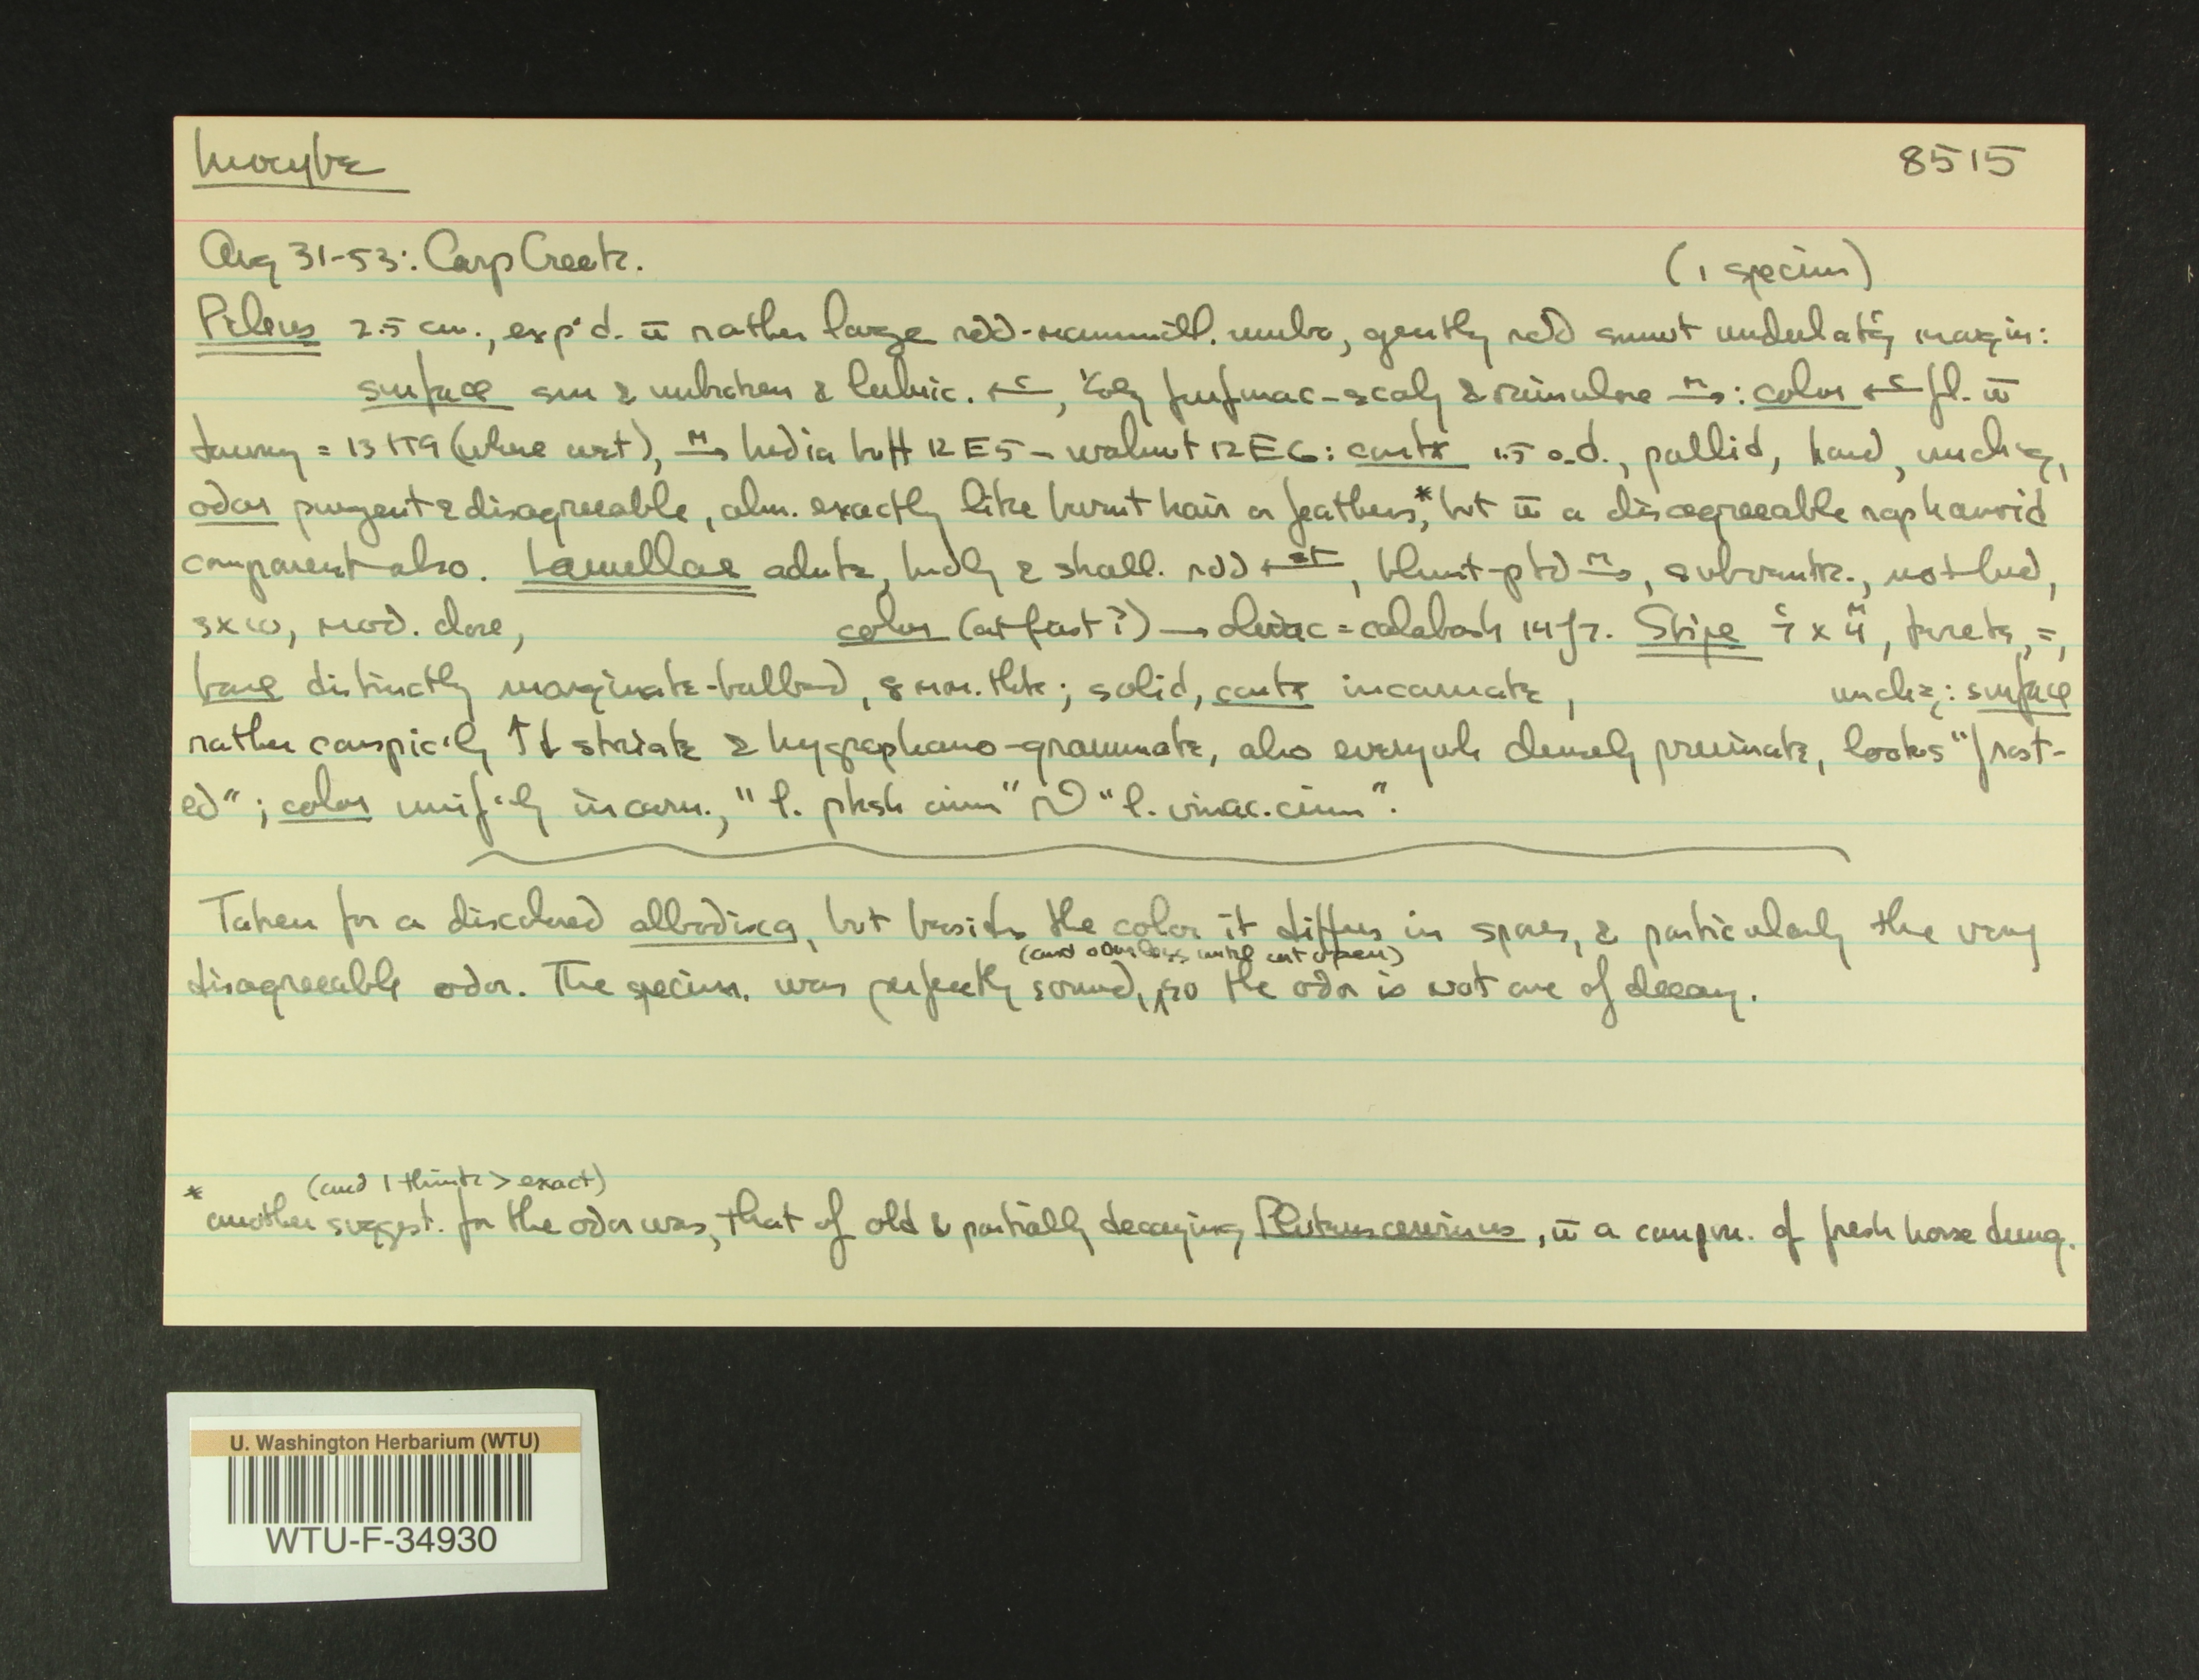 Inocybe 8515
Aug 31-53: Carp Creek. (1 specim)
Pileus 2.5 cm., exp'd. w̄ rather large rdd-mammill. umbo, gently rdd smwt undulat'g margin:
surface sm & unbroken & lubric. ←c, furfurac-scaly & rimulose M→: color ←c fl. w̄
tawny = 13 H9 (where wet), M→ India buff 12 E5 - walnut 12 E6: contx 1.5 o.d., pallid, hard, unch'g,
odor pungent & disagreeable, alm. exactly like burnt hair or feathers,* but w̄ a disagreeable raphanoid
component also. Lamellae adnate, & shall. rdd ←st, blunt-ptd M→, subventr.,
3xω, mod. close, color (at first?) → olivac = calabash 14 J7. Stipe 7 x 4, terete, =,
base distinctly marginate-bulbed, 8 mm. thk; solid, contx incarnate, unch'g: surface
rather conspic'ly ↑↓ striate & hygrophano-grammate, also everywh densely pruinate, looks "frost-
ed"; color unif'ly incarn., "l. pksh cinn" ~ "l. vinac. cinn".
Taken for a discolored albodisca, but besides the color it differs in spores, & particularly the very
(and odorless until cut open)
disagreeable odor. The specim. was perfectly sound, so the odor is not one of decay.
(and I think > exact)
* another suggest. for the odor was, that of old & partially decaying Pluteus cervinus, w̄ a compon. of fresh horse dung.
U. Washington Herbarium (WTU)
WTU-F-34930